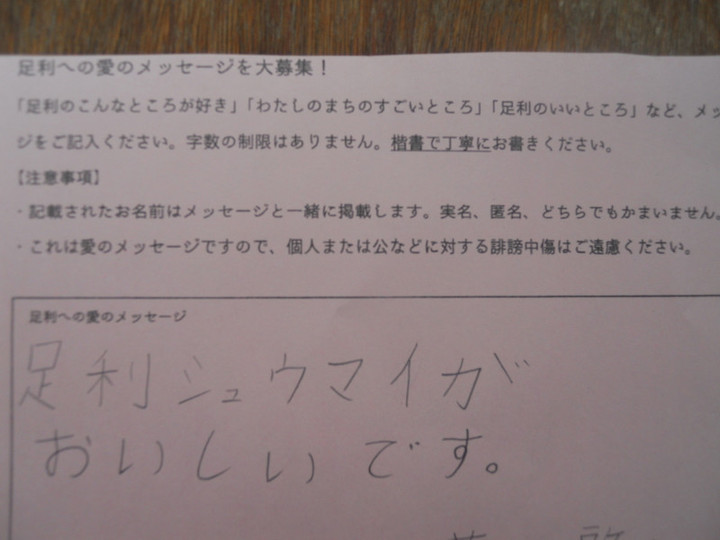 足利への愛のメッセージを大募集！
「足利のこんなところが好き」「わたしのまちのすごいところ」「足利のいいところ」など、メッ
ジをご記入ください。字数の制限はありません。楷書で丁寧にお書きください。
【注意事項】
・記載されたお名前はメッセージと一緒に掲載します。実名、匿名、どちらでもかまいません。
・これは愛のメッセージですので、個人または公などに対する誹謗中傷はご遠慮ください。
足利への愛のメッセージ
足利シュウマイが
おいしいです。